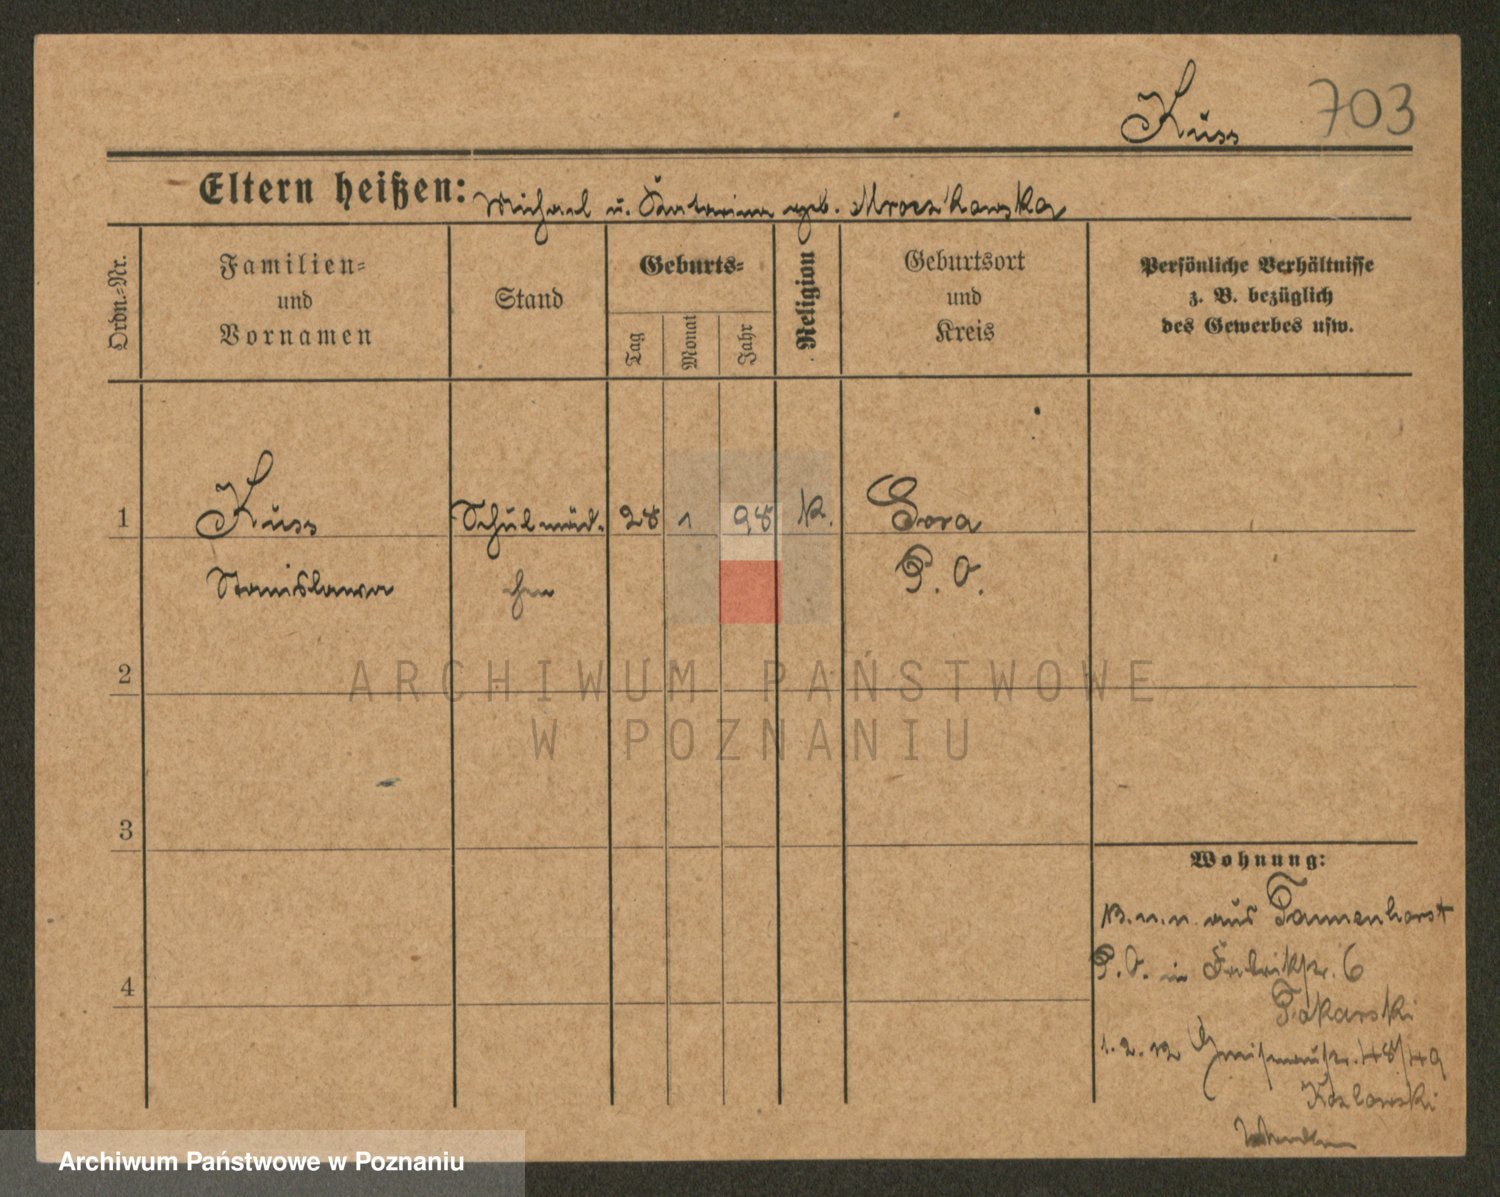 Kuss 703
Eltern heißen: Michael u. Katarina geb. Mroczkowska
Ordn.-Nr.
Familien-
und
Vornamen
Stand
Geburts-
Tag
Monat
Jahr
Religion
Geburtsort
und
Kreis
Persönliche Verhältnisse
z. B. bezüglich
des Gewerbes usw.
1 Kuss Schulmäd. 28 1 98 K. Gora
Stanislawa chen P. O.
2
ARCHIWUM PAŃSTWOWE
W POZNANIU
3
4
Wohnung:
aus Tannenhorst
P. O. in Fabrikstr. 6
Tokarski
1. 2. 12 Gneisenaustr. 48/49
Kozlowski
Archiwum Państwowe w Poznaniu